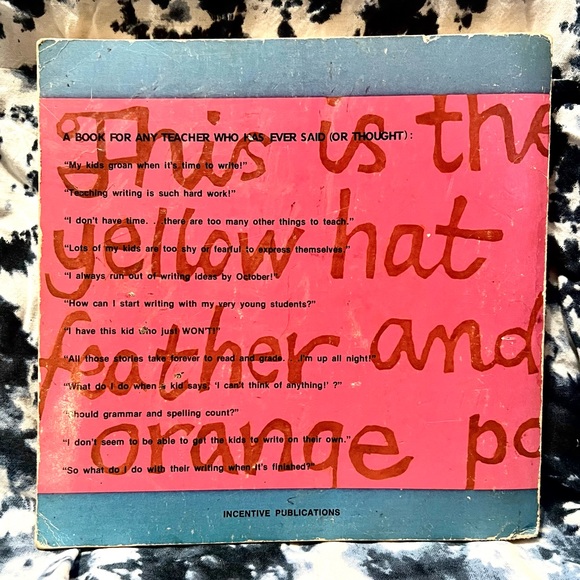 This is the
yellow hat
feather and
orange po
A BOOK FOR ANY TEACHER WHO HAS EVER SAID (OR THOUGHT):
"My kids groan when it's time to write!"
"Teaching writing is such hard work!"
"I don't have time. . .there are too many other things to teach."
"Lots of my kids are too shy or fearful to express themselves."
"I always run out of writing ideas by October!"
"How can I start writing with my very young students?"
"I have this kid who just WON'T!"
"All those stories take forever to read and grade. . .I'm up all night!"
"What do I do when a kid says, 'I can't think of anything!' ?"
"Should grammar and spelling count?"
"I don't seem to be able to get the kids to write on their own."
"So what do I do with their writing when it's finished?"
INCENTIVE PUBLICATIONS